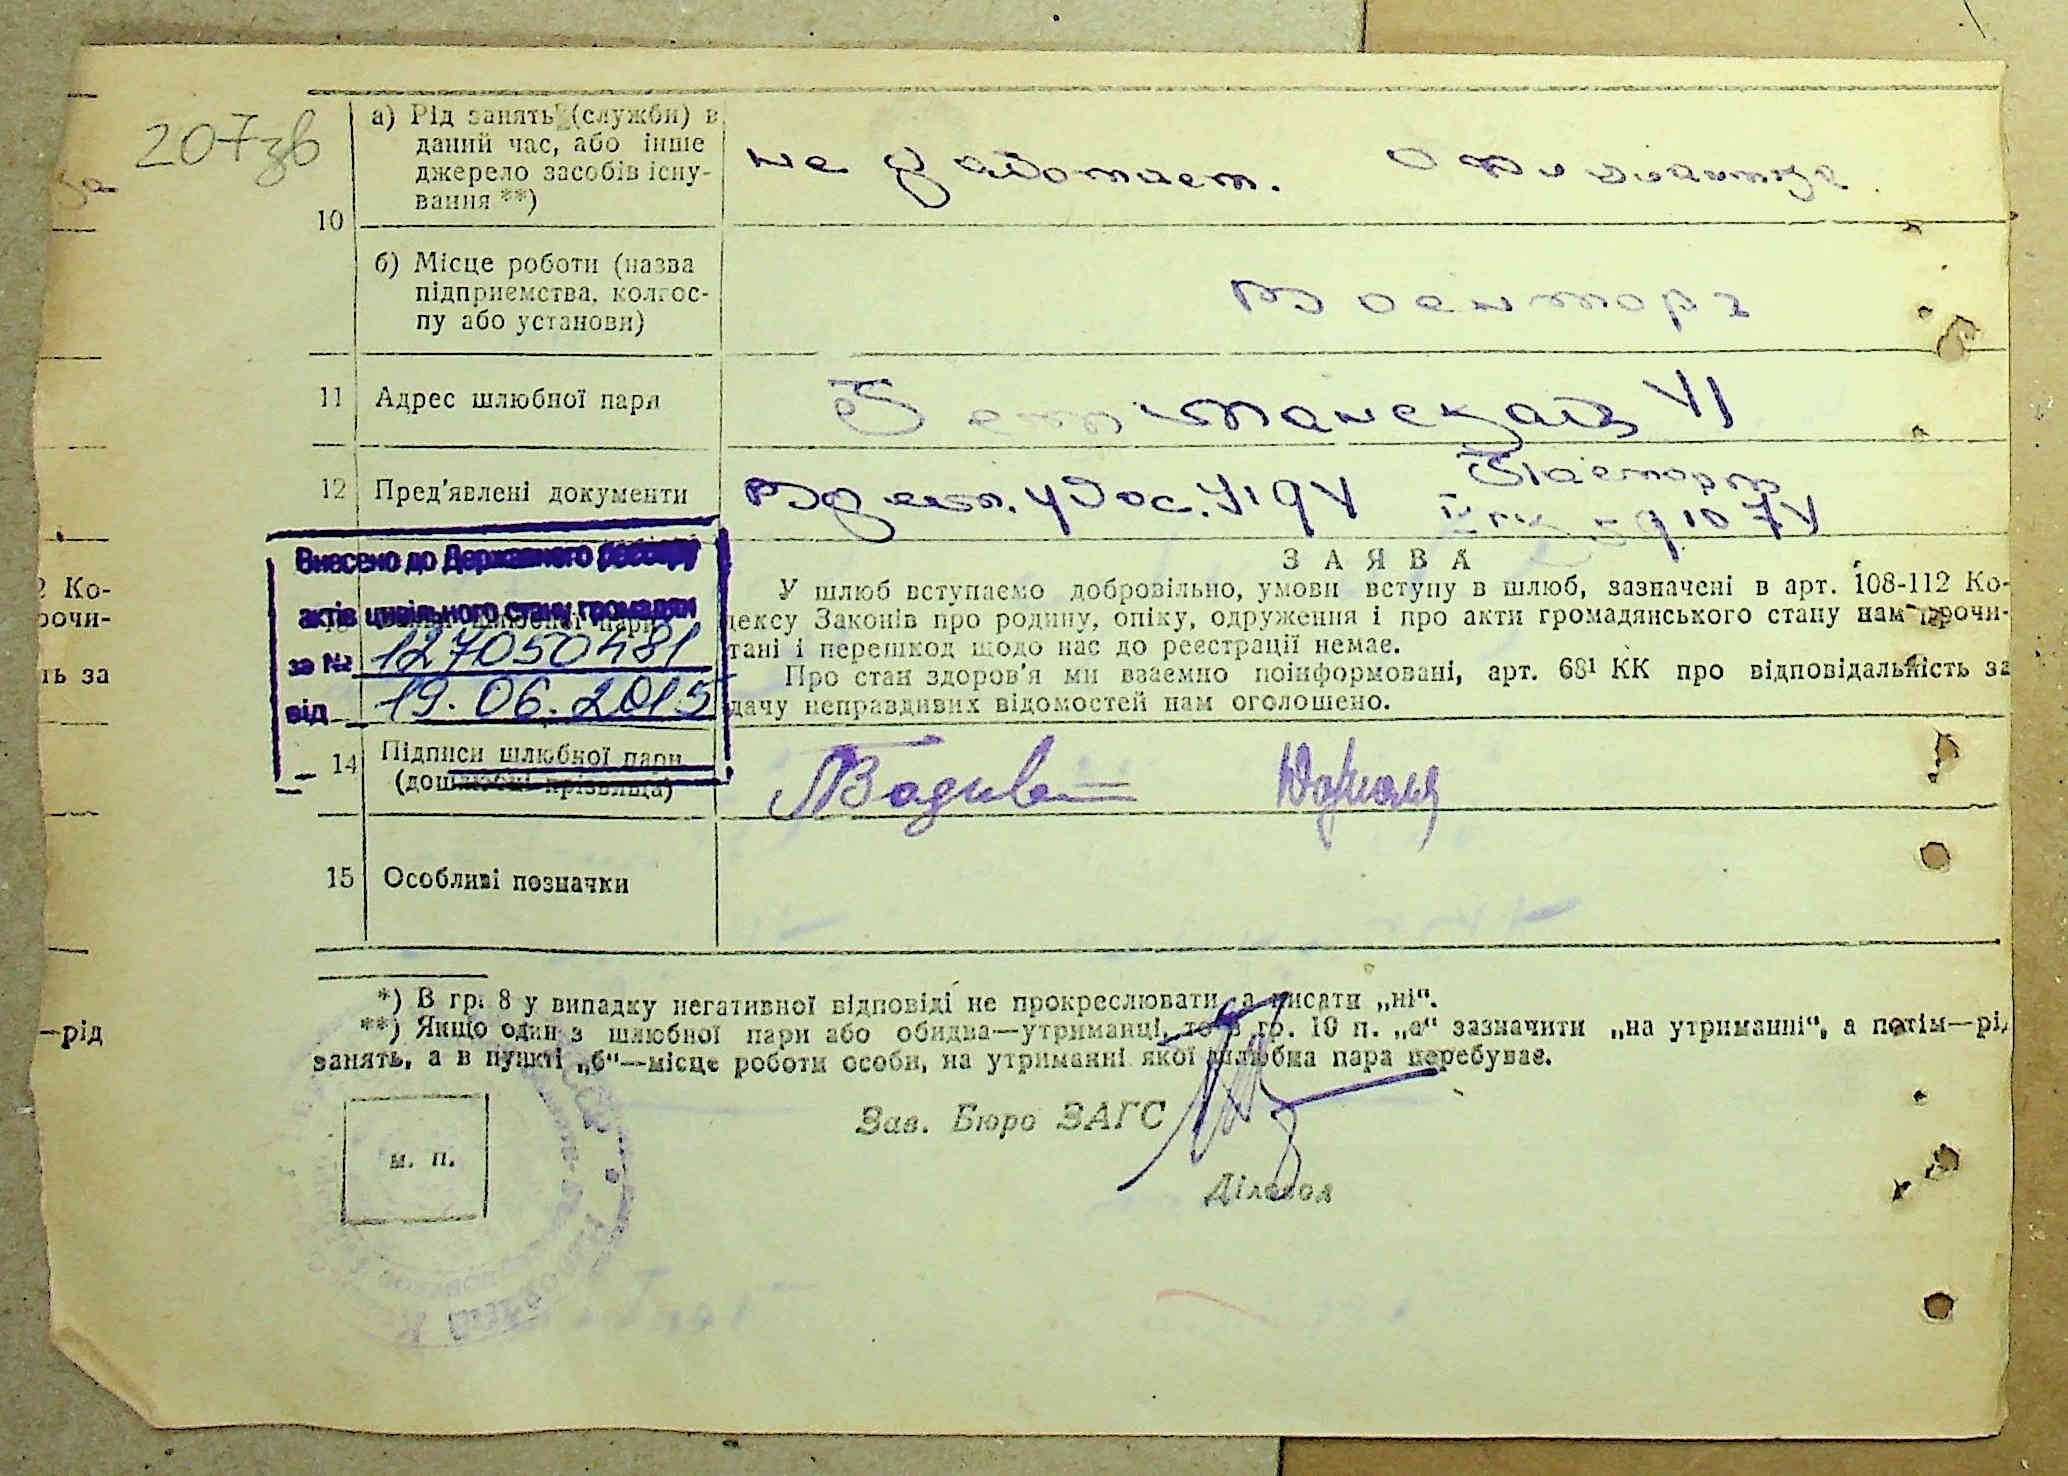 207зв
10
а) Рід занять (служби) в
даний час, або інше
джерело засобів існу-
вання **)
не работает. официантка
б) Місце роботи (назва
підприємства, колгос-
пу або установи)
Военторг
11 Адрес шлюбної пари
12 Пред'явлені документи
Паспорт
Внесено до Державного реєстру
актів цивільного стану громадян
за № 127050481
від 19.06.2015
ЗАЯВА
У шлюб вступаємо добровільно, умови вступу в шлюб, зазначені в арт. 108-112 Ко-
дексу Законів про родину, опіку, одруження і про акти громадянського стану нам прочи-
тані і перешкод щодо нас до реєстрації немає.
Про стан здоров'я ми взаємно поінформовані, арт. 68¹ КК про відповідальність за
дачу неправдивих відомостей нам оголошено.
14 Підписи шлюбної пари
(дошлюбні прізвища)
15 Особливі позначки
*) В гр. 8 у випадку негативної відповіді не прокреслювати, а писати „ні“.
**) Якщо один з шлюбної пари або обидва—утриманці, то в гр. 10 п. „а“ зазначити „на утриманні“, а потім—рід
занять, а в пункті „б“—місце роботи особи, на утриманні якої шлюбна пара перебуває.
м. п.
Зав. Бюро ЗАГС
Діловод
2 Ко-
рочи-
ть за
—рід